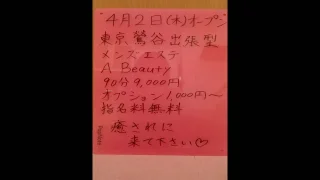 "4月2日(木)オープン"
東京鶯谷出張型
メンズエステ
A Beauty
90分9,000円
オプション1,000円〜
指名料無料
癒されに
来て下さい♡